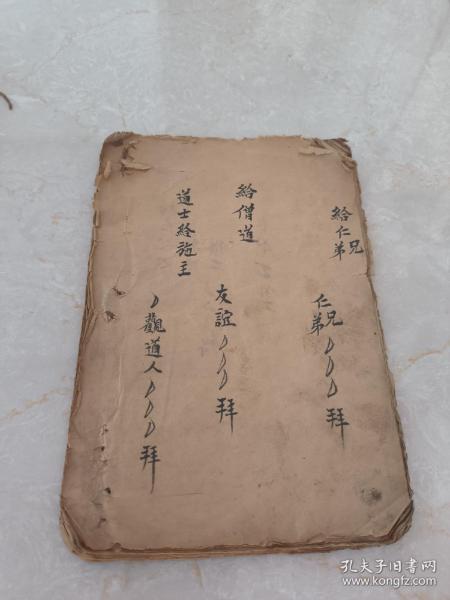 給仁兄弟
仁兄弟〇〇〇拜
給僧道
友誼〇〇〇拜
道士給施主
〇觀道人〇〇〇拜
孔夫子旧书网
www.kongfz.com